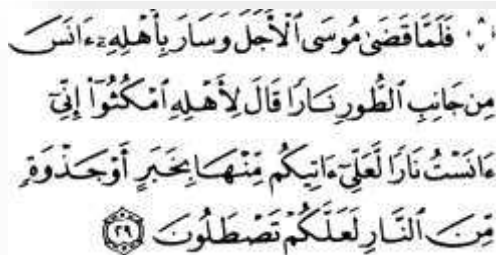 ۞ فَلَمَّا قَضَىٰ مُوسَى ٱلْأَجَلَ وَسَارَ بِأَهْلِهِۦٓ ءَانَسَ
مِن جَانِبِ ٱلطُّورِ نَارًا قَالَ لِأَهْلِهِ ٱمْكُثُوٓا۟ إِنِّىٓ
ءَانَسْتُ نَارًا لَّعَلِّىٓ ءَاتِيكُم مِّنْهَا بِخَبَرٍ أَوْ جَذْوَةٍ
مِّنَ ٱلنَّارِ لَعَلَّكُمْ تَصْطَلُونَ ۝٢٩